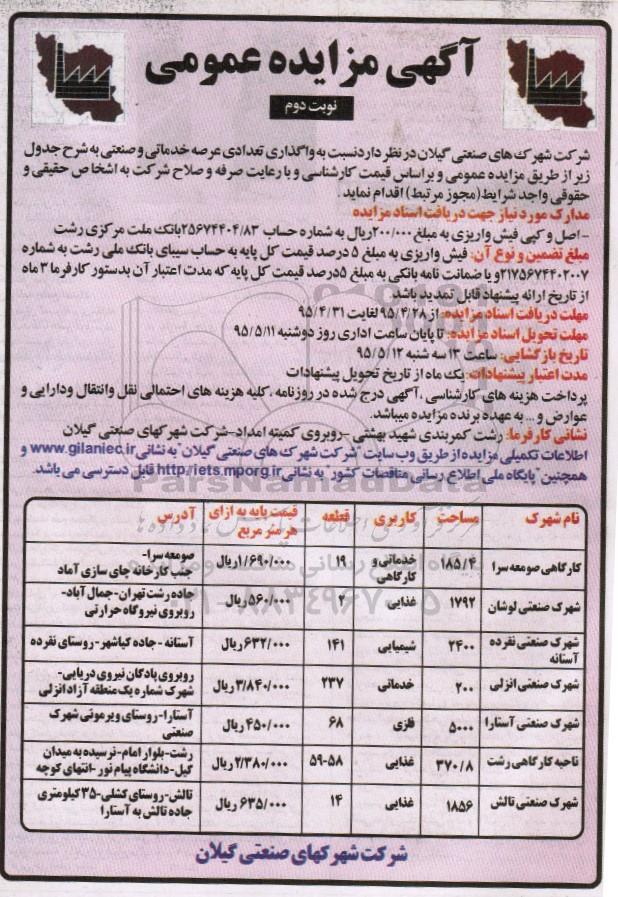 آگهی مزایده عمومی
نوبت دوم
شرکت شهرک های صنعتی گیلان در نظر دارد نسبت به واگذاری تعدادی عرصه خدماتی و صنعتی به شرح جدول
زیر از طریق مزایده عمومی و براساس قیمت کارشناسی و با رعایت صرفه و صلاح شرکت به اشخاص حقیقی و
حقوقی واجد شرایط (مجوز مرتبط) اقدام نماید.
مدارک مورد نیاز جهت دریافت اسناد مزایده
-اصل و کپی فیش واریزی به مبلغ ۲۰۰/۰۰۰ریال به شماره حساب ۲۵۶۷۴۴۰۴/۸۳بانک ملت مرکزی رشت
مبلغ تضمین و نوع آن: فیش واریزی به مبلغ ۵ درصد قیمت کل پایه به حساب سیبای بانک ملی رشت به شماره
۲۱۷۵۶۷۴۴۰۲۰۰۷و یا ضمانت نامه بانکی به مبلغ ۵درصد قیمت کل پایه که مدت اعتبار آن بدستور کارفرما ۳ ماه
از تاریخ ارائه پیشنهاد قابل تمدید باشد.
مهلت دریافت اسناد مزایده: از ۹۵/۴/۲۸ لغایت ۹۵/۴/۳۱
مهلت تحویل اسناد مزایده: تا پایان ساعت اداری روز دوشنبه ۹۵/۵/۱۱
تاریخ بازگشایی: ساعت ۱۳ سه شنبه ۹۵/۵/۱۲
مدت اعتبار پیشنهادات: یک ماه از تاریخ تحویل پیشنهادات
پرداخت هزینه های کارشناسی ،آگهی درج شده در روزنامه ،کلیه هزینه های احتمالی نقل وانتقال ودارایی و
عوارض و ... به عهده برنده مزایده میباشد.
نشانی کارفرما: رشت کمربندی شهید بهشتی -روبروی کمیته امداد-شرکت شهرکهای صنعتی گیلان
اطلاعات تکمیلی مزایده از طریق وب سایت "شرکت شهرک های صنعتی گیلان" به نشانی www.gilaniec.ir و
همچنین "پایگاه ملی اطلاع رسانی مناقصات کشور" به نشانی http://iets.mporg.ir قابل دسترسی می باشد.
ParsNamadData
نام شهرک مساحت کاربری قطعه قیمت پایه به ازای هر متر مربع آدرس
کارگاهی صومعه سرا ۱۸۵/۴ خدماتی و کارگاهی ۱۹ ۱/۶۹۰/۰۰۰ریال صومعه سرا- جنب کارخانه چای سازی آماد
شهرک صنعتی لوشان ۱۷۹۲ غذایی ۵۶۰/۰۰۰ریال جاده رشت تهران-جمال آباد- روبروی نیروگاه حرارتی
شهرک صنعتی نقرده آستانه ۲۴۰۰ شیمیایی ۱۴۱ ۶۳۲/۰۰۰ریال آستانه - جاده کیاشهر-روستای نقرده
شهرک صنعتی انزلی ۲۰۰ خدماتی ۲۳۷ ۳/۸۴۰/۰۰۰ریال روبروی پادگان نیروی دریایی- شهرک شماره یک منطقه آزاد انزلی
شهرک صنعتی آستارا ۵۰۰۰ فلزی ۶۸ ۴۵۰/۰۰۰ ریال آستارا-روستای ویرمونی شهرک صنعتی
ناحیه کارگاهی رشت ۳۷۰/۸ غذایی ۵۹-۵۸ ۲/۳۸۰/۰۰۰ریال رشت-بلوار امام-نرسیده به میدان گیل-دانشگاه پیام نور-انتهای کوچه
شهرک صنعتی تالش ۱۸۵۶ غذایی ۱۴ ۶۳۵/۰۰۰ ریال تالش-روستای کشلی-۳۵کیلومتری جاده تالش به آستارا
شرکت شهرکهای صنعتی گیلان